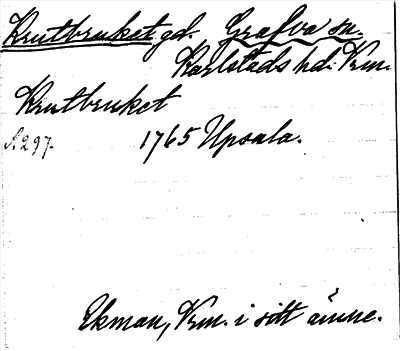 Krutbruket gd. Grafva sn.
Karlstads hd. Vrm.
Krutbruket
S. 297. 1765 Upsala.
Ekman, Vrm. i sitt ämne.